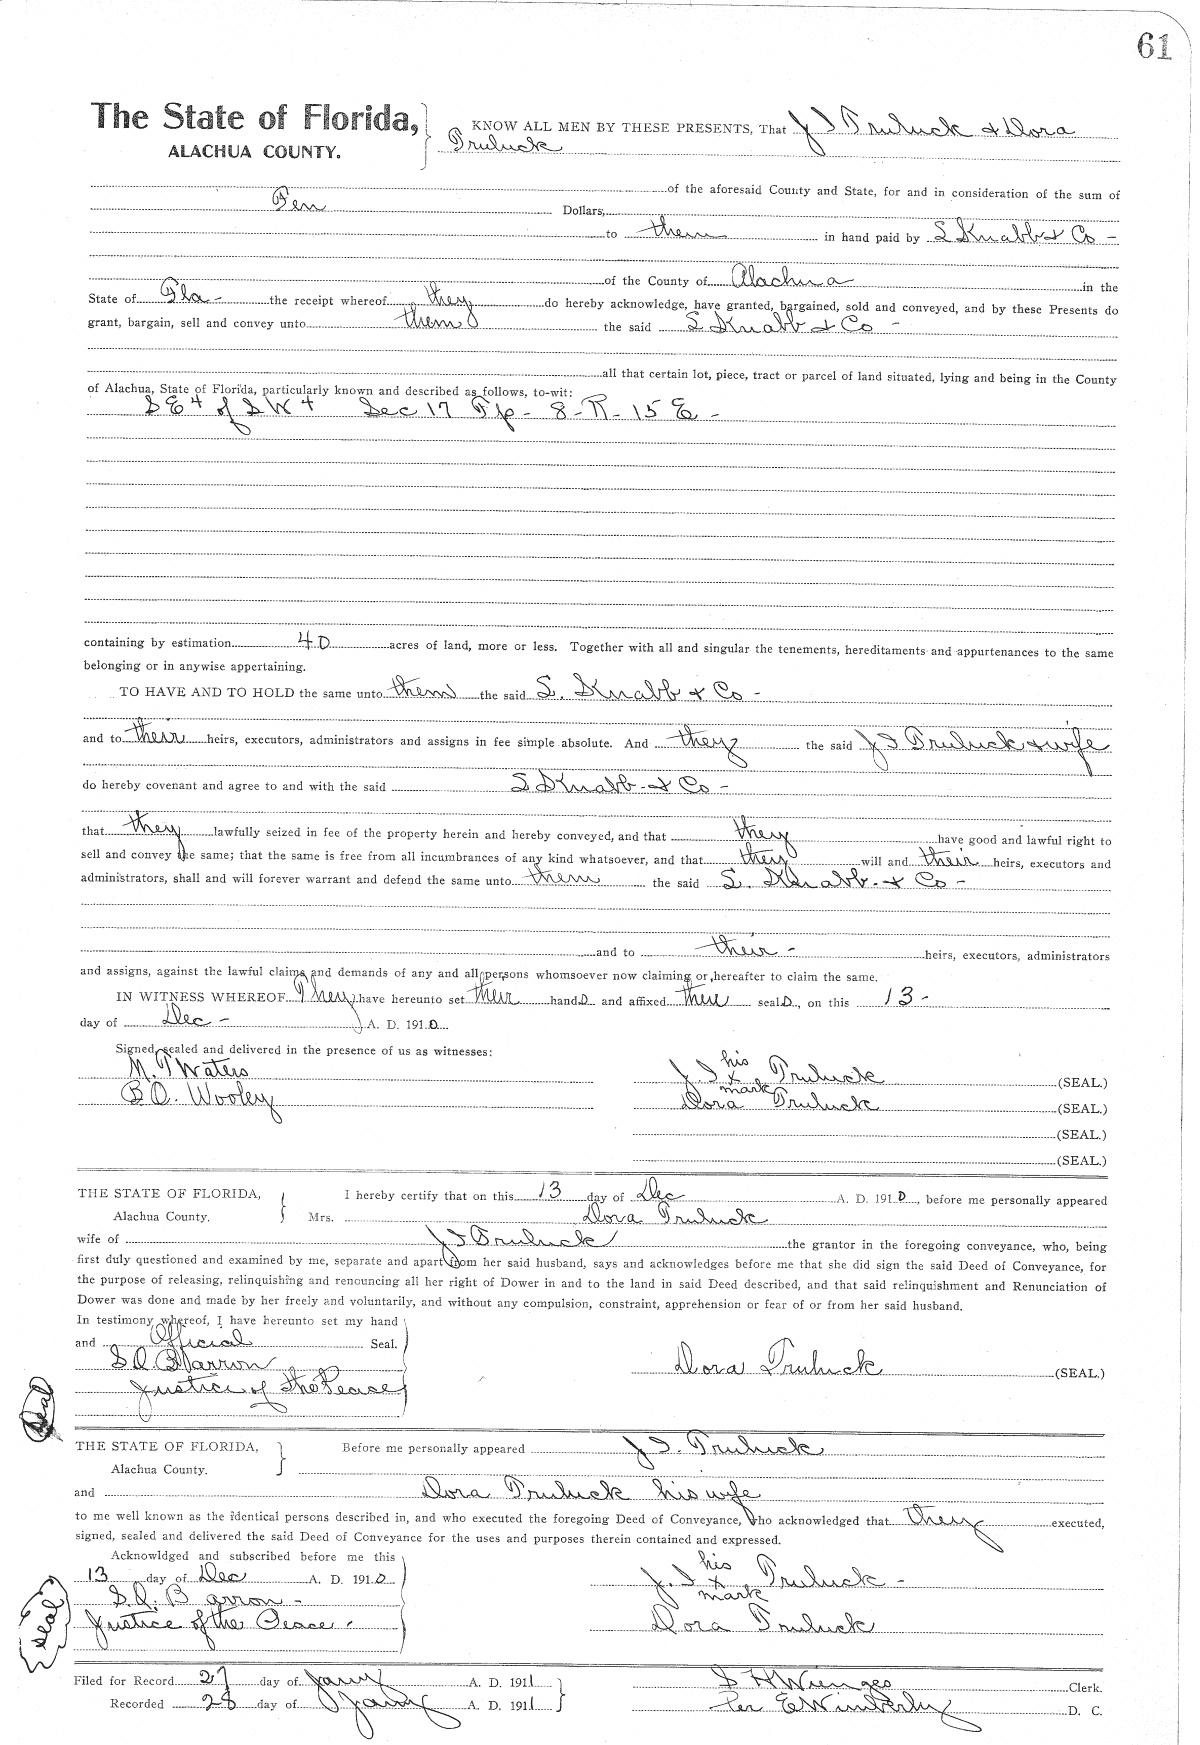 61
The State of Florida, KNOW ALL MEN BY THESE PRESENTS, That J I Truluck & Dora
ALACHUA COUNTY. Truluck
of the aforesaid County and State, for and in consideration of the sum of
Ten Dollars,
to them in hand paid by S Knabb & Co -
of the County of Alachua in the
State of Fla - the receipt whereof they do hereby acknowledge, have granted, bargained, sold and conveyed, and by these Presents do
grant, bargain, sell and convey unto them the said S Knabb & Co -
all that certain lot, piece, tract or parcel of land situated, lying and being in the County
of Alachua, State of Florida, particularly known and described as follows, to-wit:
S E 4 of S W 4 Sec 17 Tp - 8 - R - 15 E -
containing by estimation 40 acres of land, more or less. Together with all and singular the tenements, hereditaments and appurtenances to the same
belonging or in anywise appertaining.
TO HAVE AND TO HOLD the same unto them the said S. Knabb & Co -
and to their heirs, executors, administrators and assigns in fee simple absolute. And they the said J I Truluck & wife
do hereby covenant and agree to and with the said S Knabb - & Co -
that they lawfully seized in fee of the property herein and hereby conveyed, and that they have good and lawful right to
sell and convey the same; that the same is free from all incumbrances of any kind whatsoever, and that they will and their heirs, executors and
administrators, shall and will forever warrant and defend the same unto them the said S. Knabb - & Co -
and to their - heirs, executors, administrators
and assigns, against the lawful claims and demands of any and all persons whomsoever now claiming or hereafter to claim the same.
IN WITNESS WHEREOF They have hereunto set their hands and affixed their seals, on this 13 -
day of Dec - A. D. 1910
Signed, sealed and delivered in the presence of us as witnesses:
M. T Waters J I his x mark Truluck (SEAL.)
B O. Wooley Dora Truluck (SEAL.)
(SEAL.)
(SEAL.)
THE STATE OF FLORIDA, I hereby certify that on this 13 day of Dec A. D. 1910, before me personally appeared
Alachua County. Mrs. Dora Truluck
wife of J I Truluck the grantor in the foregoing conveyance, who, being
first duly questioned and examined by me, separate and apart from her said husband, says and acknowledges before me that she did sign the said Deed of Conveyance, for
the purpose of releasing, relinquishing and renouncing all her right of Dower in and to the land in said Deed described, and that said relinquishment and Renunciation of
Dower was done and made by her freely and voluntarily, and without any compulsion, constraint, apprehension or fear of or from her said husband.
In testimony whereof, I have hereunto set my hand
and Official Seal.
S D Barron Dora Truluck (SEAL.)
Justice of the Pease
Seal
THE STATE OF FLORIDA, Before me personally appeared J I. Truluck
Alachua County.
and Dora Truluck his wife
to me well known as the identical persons described in, and who executed the foregoing Deed of Conveyance, who acknowledged that they executed,
signed, sealed and delivered the said Deed of Conveyance for the uses and purposes therein contained and expressed.
Acknowldged and subscribed before me this
13 day of Dec A. D. 1910 J. I his x mark Truluck -
S. D. Barron -
Justice of the Peace - Dora Truluck
Seal
Filed for Record 27 day of Jany A. D. 1911 S H Wienges Clerk.
Recorded 28 day of Jany A. D. 1911 Per E Wimberly D. C.